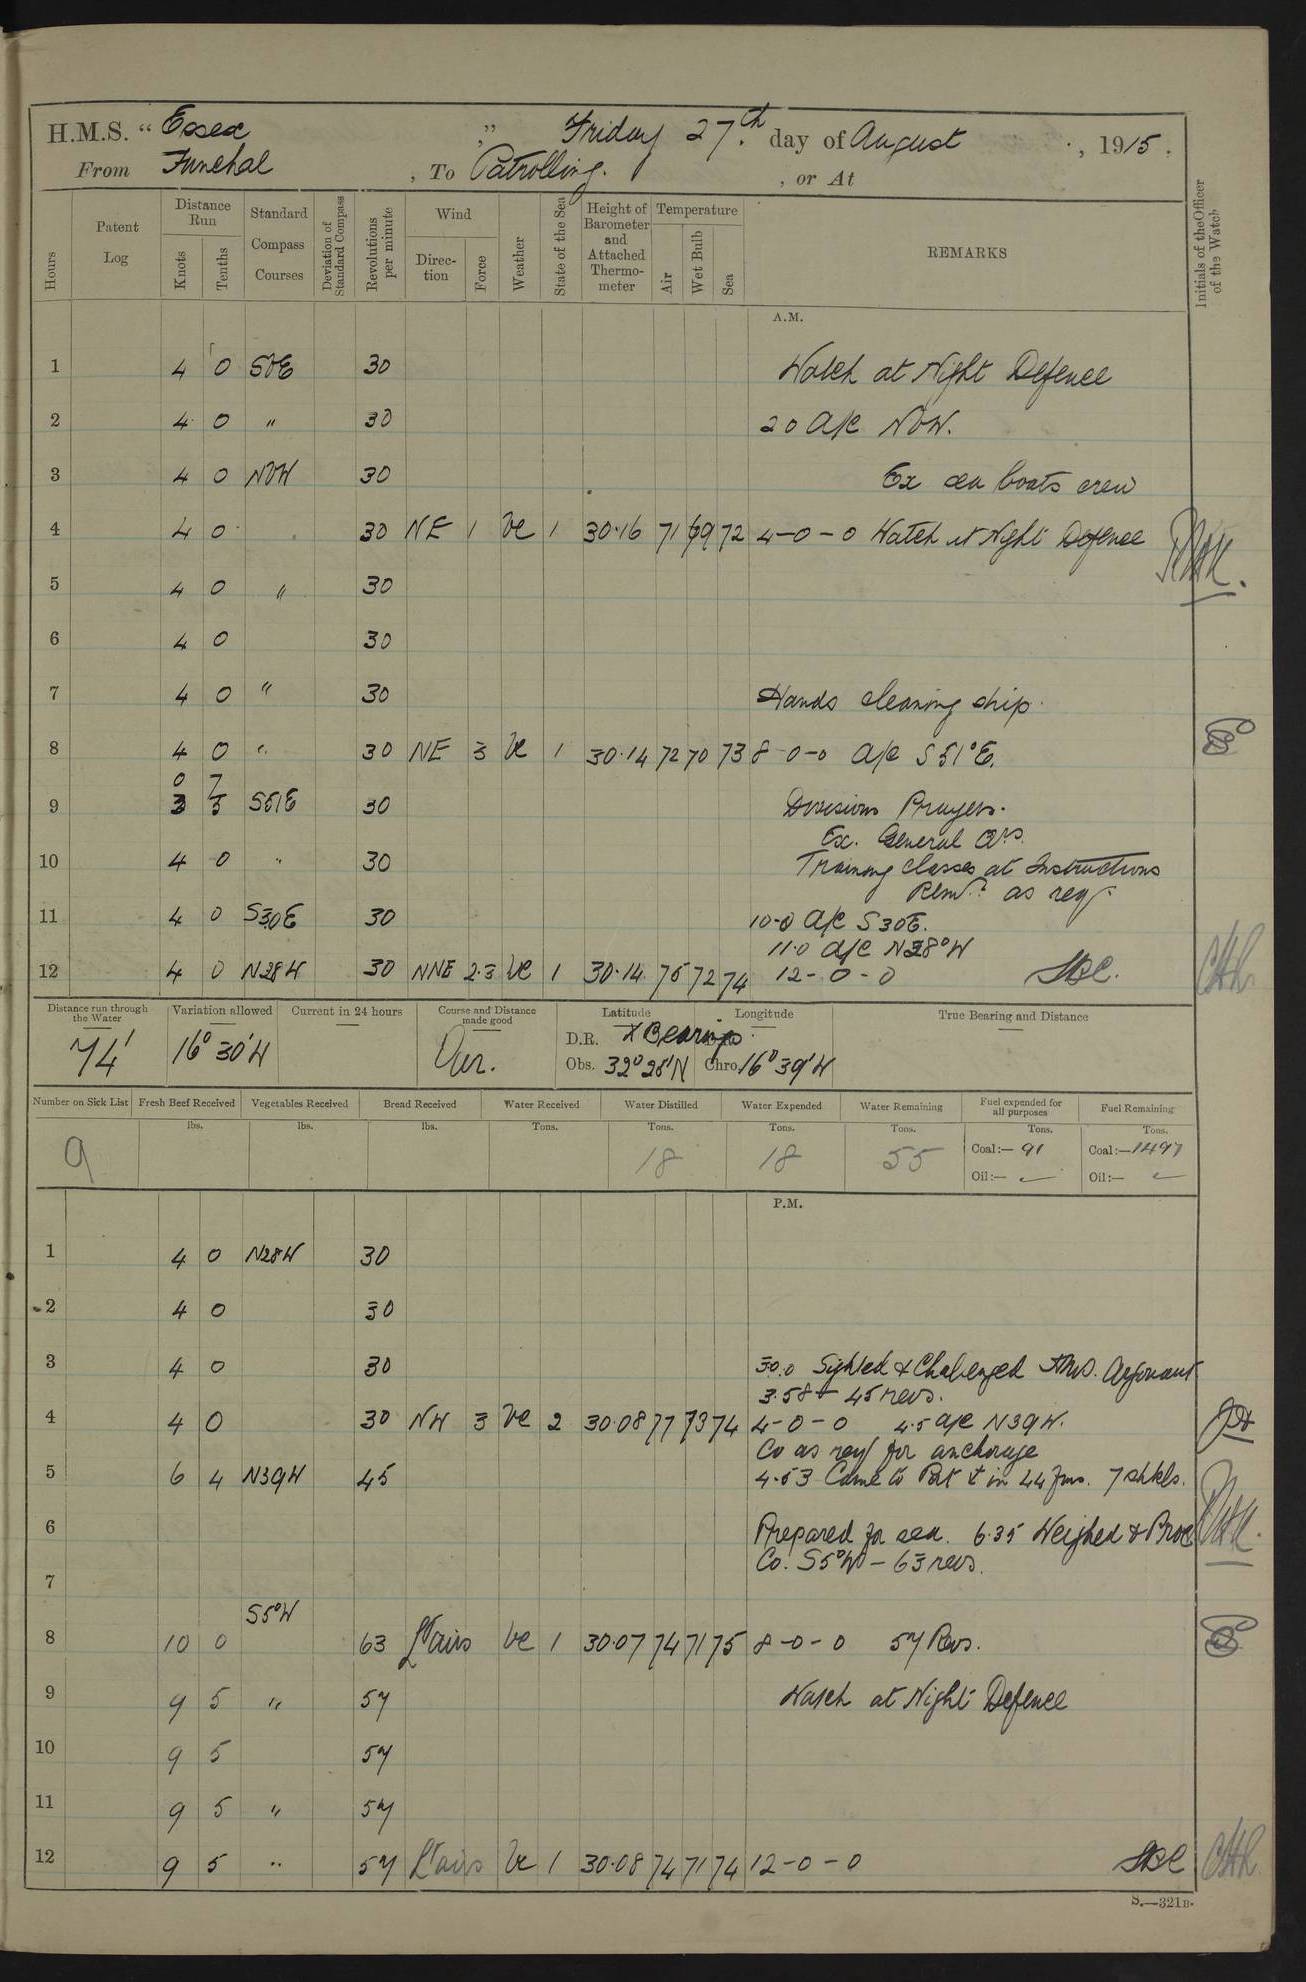 H.M.S. " Essex " Friday 27.th day of August , 1915.
From Funchal , To Patrolling. , or At
Hours Patent Log Distance Run Knots Tenths Standard Compass Courses Deviation of Standard Compass Revolutions per minute Wind Direction Force Weather State of the Sea Height of Barometer and Attached Thermometer Temperature Air Wet Bulb Sea REMARKS Initials of the Officer of the Watch
A.M.
1 4 0 30 Watch at Night Defence
2 4 0 " 30 2 0 A/c
3 4 0 30 Ex sea boats crew
4 4 0 30 NE 1 bc 1 30.16 71 69 72 4-0-0 Watch at Night Defence
5 4 0 " 30
6 4 0 30
7 4 0 " 30 Hands cleaning ship.
8 4 0 " 30 NE 3 bc 1 30.14 72 70 73 8-0-0 A/c S 51° E.
0 7
9 3 3 S51E 30 Divisions Prayers.
Ex. General Qrs.
10 4 0 " 30 Training Classes at Instructions
Remr. as req.
11 4 0 S30E 30 10-0 A/c S 30 E.
11.0 A/c N28°W
12 4 0 N28W 30 NNE 2.3 bc 1 30.14 75 72 74 12-0-0
Distance run through the Water Variation allowed Current in 24 hours Course and Distance made good Latitude Longitude True Bearing and Distance
74' 16° 30' W Var. D.R. X Bearings
Obs. 32° 28' N Chro. 16° 39' W
Number on Sick List Fresh Beef Received Vegetables Received Bread Received Water Received Water Distilled Water Expended Water Remaining Fuel expended for all purposes Fuel Remaining
lbs. lbs. lbs. Tons. Tons. Tons. Tons. Tons. Tons.
9 18 18 55 Coal:— 91 Coal:—1497
Oil:— Oil:—
P.M.
1 4 0 N28W 30
2 4 0 30
3 4 0 30 3.0.0 Sighted & Challenged HMS. Argonaut
3.58 - 45 revs.
4 4 0 30 NW 3 bc 2 30.08 77 73 74 4-0-0 4.5 A/c N39W.
Co as req for anchorage
5 6 4 N39W 45 4.53 Came to Port in 44 fms. 7 shkls.
6 Prepared for sea. 6.35 Weighed & Proc
Co. S5°W - 63 revs.
7
S5°W
8 10 0 63 Lt airs bc 1 30.07 74 71 75 8-0-0 57 Revs.
9 9 5 " 57 Watch at Night Defence
10 9 5 57
11 9 5 " 57
12 9 5 " 57 Lt airs bc 1 30.08 74 71 74 12-0-0
S.—321B.